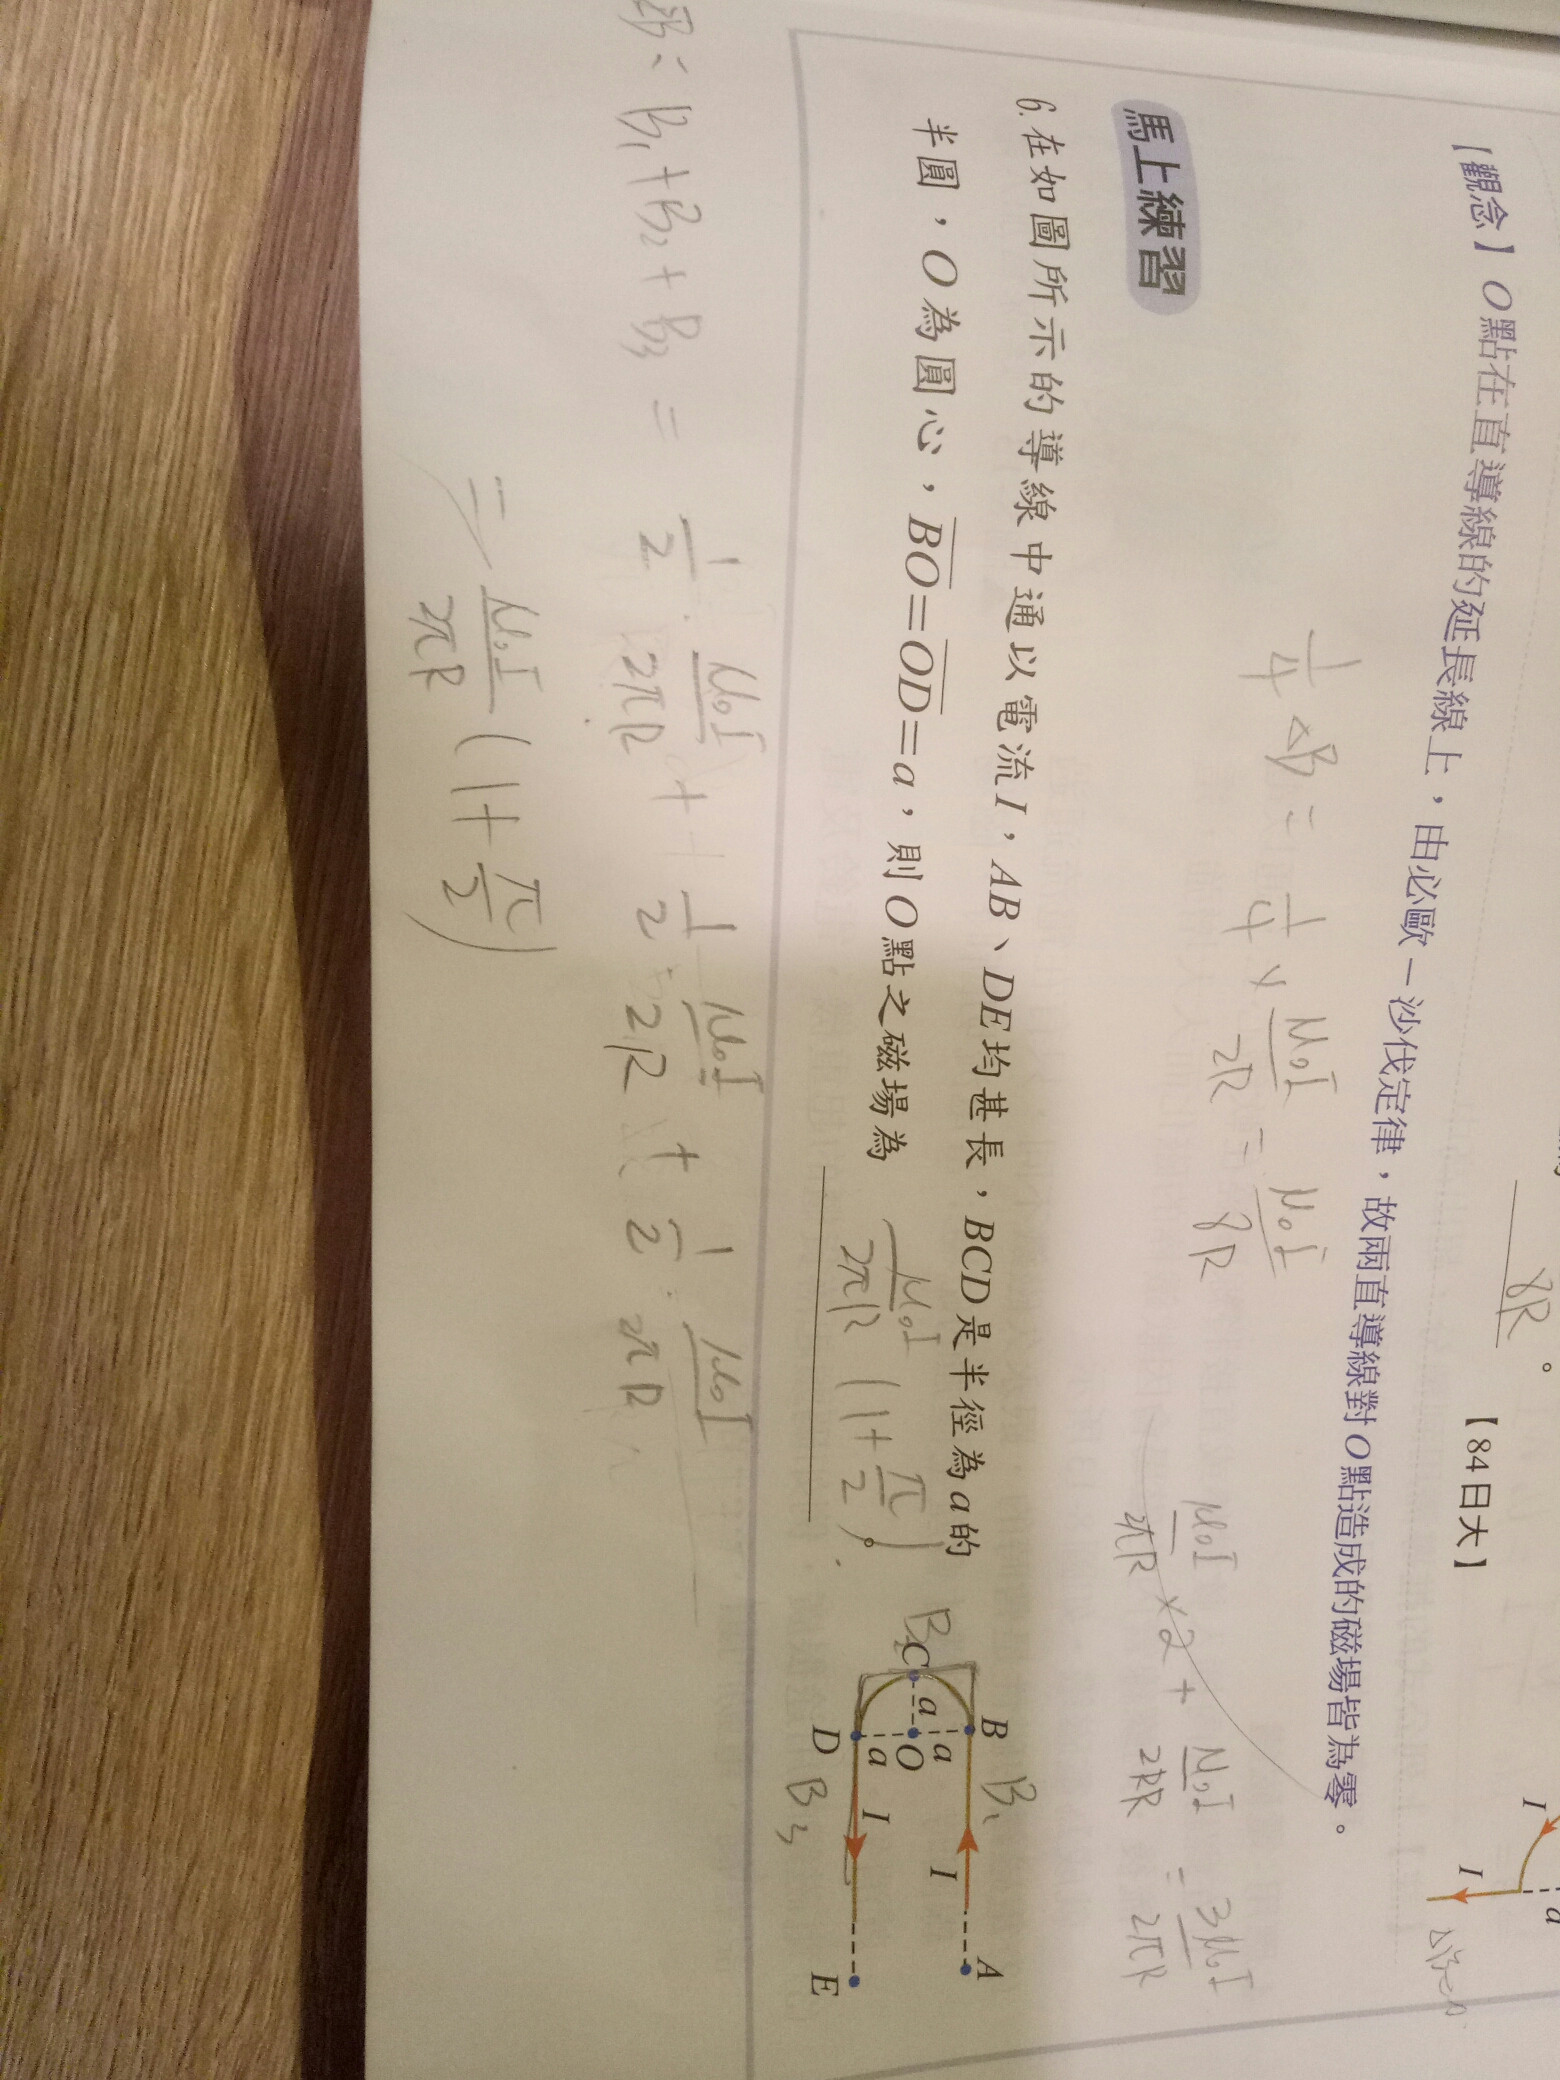 8R 。 【84日大】
【觀念】O點在直導線的延長線上，由必歐－沙伐定律，故兩直導線對O點造成的磁場皆為零。
I
I
a
1/4 ×B = 1/4 × μ₀I/2R = μ₀I/8R
μ₀I/2πR ×2 + μ₀I/2R = 3μ₀I/2πR
馬上練習
6.在如圖所示的導線中通以電流I，AB、DE均甚長，BCD是半徑為a的
半圓，O為圓心，BO=OD=a，則O點之磁場為 μ₀I/2πR (1+π/2)。
B B₁ I A
B₂ C a a O
a
D B₃ I E
B₁+B₂+B₃ = 1/2 · μ₀I/2πR + 1/2 · μ₀I/2R + 1/2 · μ₀I/2πR
= μ₀I/2πR (1+π/2)